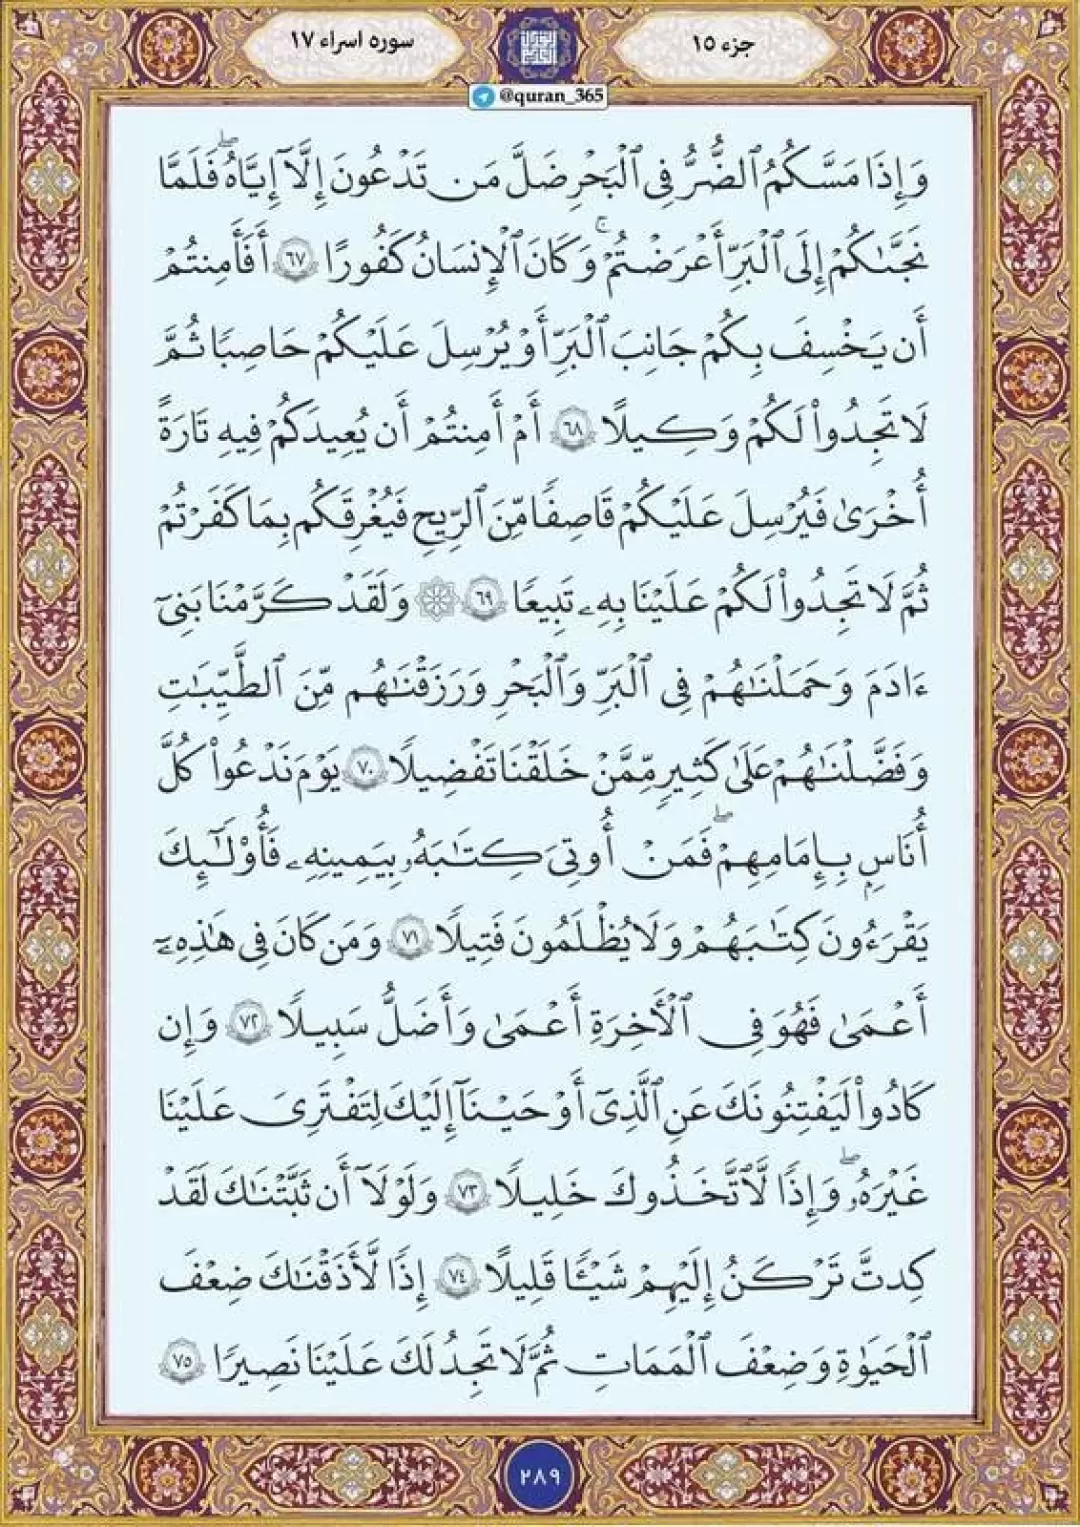 جزء ١٥
سوره اسراء ١٧
@quran_365
وَإِذَا مَسَّكُمُ ٱلضُّرُّ فِى ٱلْبَحْرِ ضَلَّ مَن تَدْعُونَ إِلَّآ إِيَّاهُ ۖ فَلَمَّا
نَجَّىٰكُمْ إِلَى ٱلْبَرِّ أَعْرَضْتُمْ ۚ وَكَانَ ٱلْإِنسَانُ كَفُورًا ٦٧ أَفَأَمِنتُمْ
أَن يَخْسِفَ بِكُمْ جَانِبَ ٱلْبَرِّ أَوْ يُرْسِلَ عَلَيْكُمْ حَاصِبًا ثُمَّ
لَا تَجِدُوا۟ لَكُمْ وَكِيلًا ٦٨ أَمْ أَمِنتُمْ أَن يُعِيدَكُمْ فِيهِ تَارَةً
أُخْرَىٰ فَيُرْسِلَ عَلَيْكُمْ قَاصِفًا مِّنَ ٱلرِّيحِ فَيُغْرِقَكُم بِمَا كَفَرْتُمْ
ثُمَّ لَا تَجِدُوا۟ لَكُمْ عَلَيْنَا بِهِۦ تَبِيعًا ٦٩ ۞ وَلَقَدْ كَرَّمْنَا بَنِىٓ
ءَادَمَ وَحَمَلْنَٰهُمْ فِى ٱلْبَرِّ وَٱلْبَحْرِ وَرَزَقْنَٰهُم مِّنَ ٱلطَّيِّبَٰتِ
وَفَضَّلْنَٰهُمْ عَلَىٰ كَثِيرٍ مِّمَّنْ خَلَقْنَا تَفْضِيلًا ٧٠ يَوْمَ نَدْعُوا۟ كُلَّ
أُنَاسٍۭ بِإِمَامِهِمْ ۖ فَمَنْ أُوتِىَ كِتَٰبَهُۥ بِيَمِينِهِۦ فَأُو۟لَٰٓئِكَ
يَقْرَءُونَ كِتَٰبَهُمْ وَلَا يُظْلَمُونَ فَتِيلًا ٧١ وَمَن كَانَ فِى هَٰذِهِۦٓ
أَعْمَىٰ فَهُوَ فِى ٱلْأَخِرَةِ أَعْمَىٰ وَأَضَلُّ سَبِيلًا ٧٢ وَإِن
كَادُوا۟ لَيَفْتِنُونَكَ عَنِ ٱلَّذِىٓ أَوْحَيْنَآ إِلَيْكَ لِتَفْتَرِىَ عَلَيْنَا
غَيْرَهُۥ ۖ وَإِذًا لَّٱتَّخَذُوكَ خَلِيلًا ٧٣ وَلَوْلَآ أَن ثَبَّتْنَٰكَ لَقَدْ
كِدتَّ تَرْكَنُ إِلَيْهِمْ شَيْـًٔا قَلِيلًا ٧٤ إِذًا لَّأَذَقْنَٰكَ ضِعْفَ
ٱلْحَيَوٰةِ وَضِعْفَ ٱلْمَمَاتِ ثُمَّ لَا تَجِدُ لَكَ عَلَيْنَا نَصِيرًا ٧٥
٢٨٩